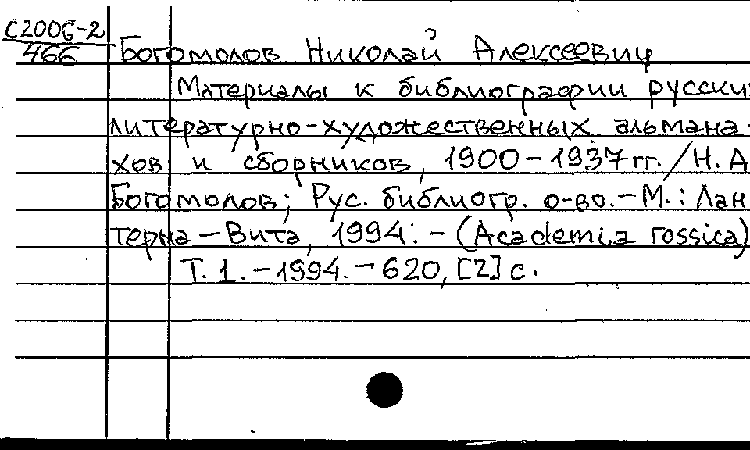 С2006-2
466
Богомолов Николай Алексеевич
Материалы к библиографии русских
литературно-художественных альмана-
хов и сборников, 1900-1937 гг. / Н. А.
Богомолов; Рус. библиогр. о-во. - М.: Лан
терна-Вита, 1994. - (Academia rossica)
Т. 1. - 1994. - 620, [2] с.